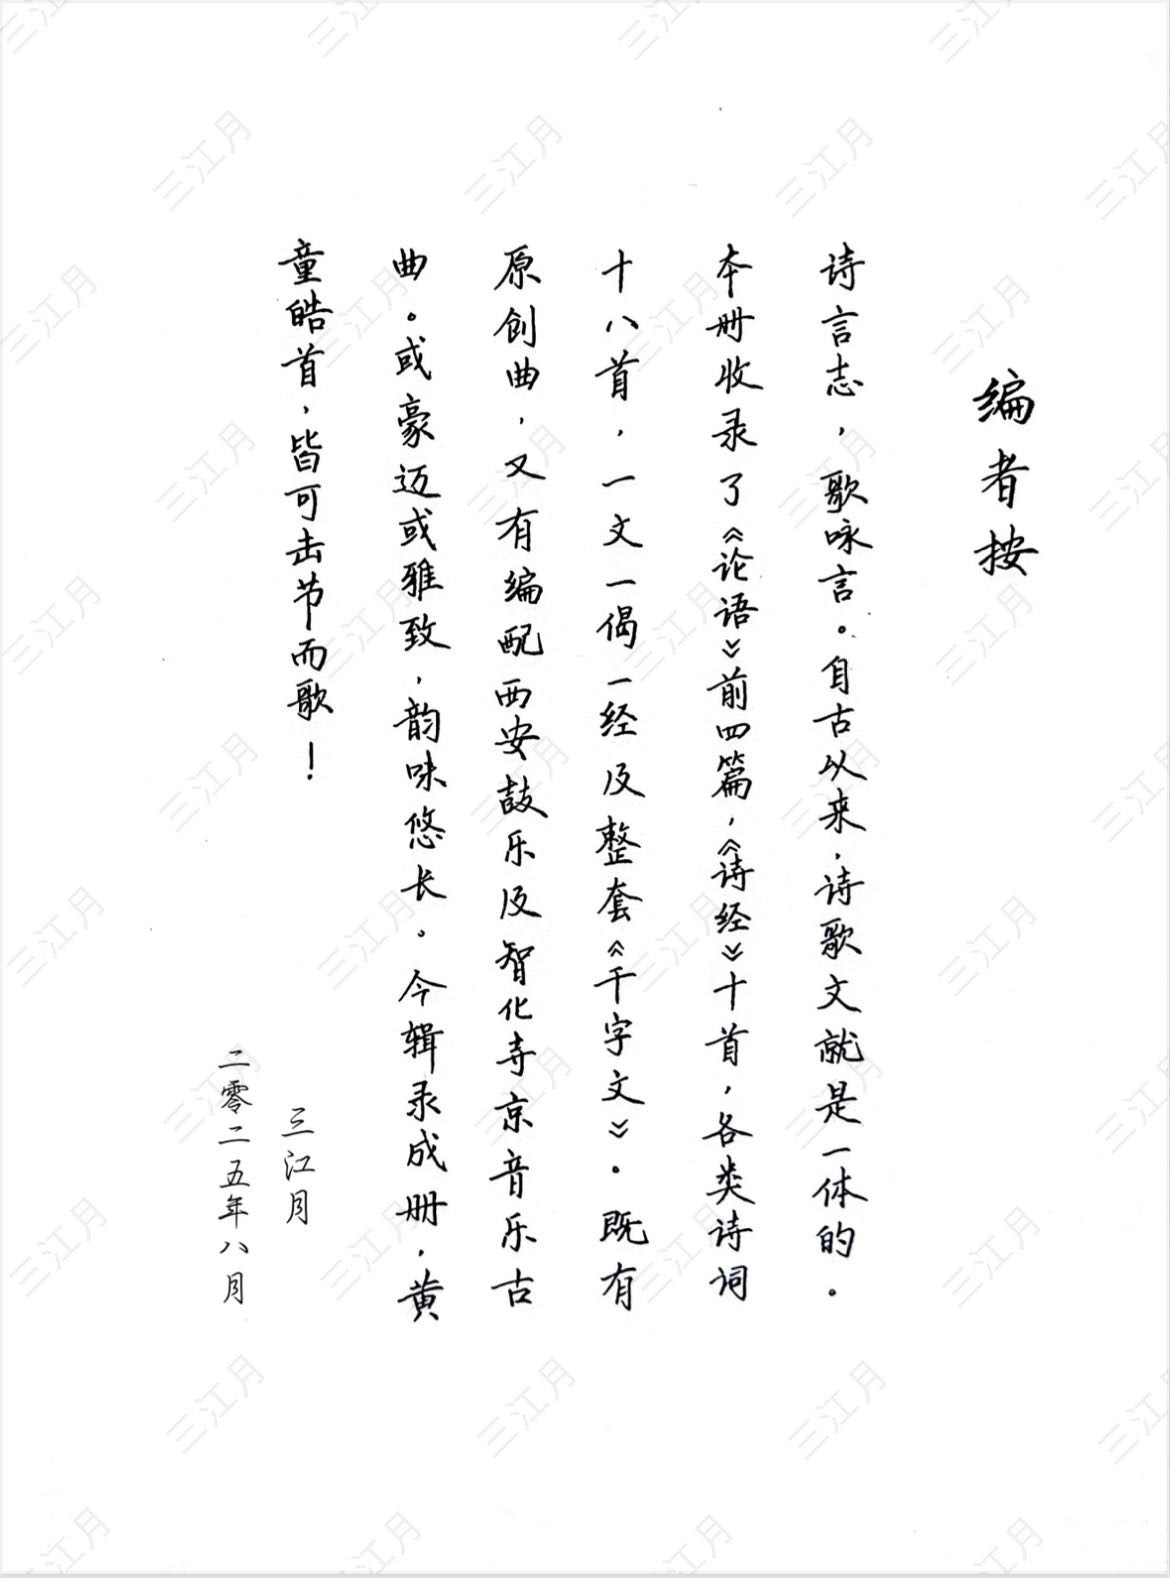 编者按
诗言志，歌咏言。自古以来，诗歌文就是一体的。
本册收录了《论语》前四篇，《诗经》十首，各类诗词
十八首，一文一偈一经及整套《千字文》。既有
原创曲，又有编配西安鼓乐及智化寺京音乐古
曲。或豪迈或雅致，韵味悠长。今辑录成册，黄
童皓首，皆可击节而歌！
三江月
二零二五年八月